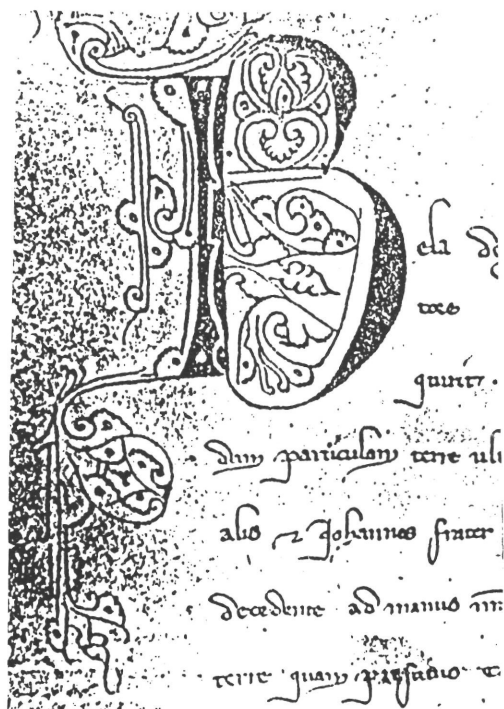 Bela de
tore
quirit
dam particulam terre
alio et Johannes frater
decedente ad manus
terre quam prefatus